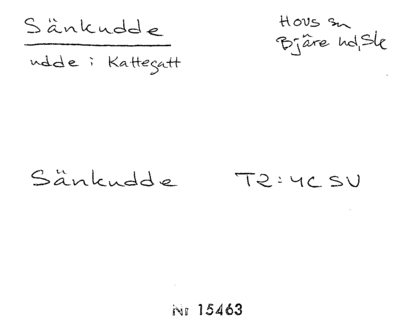 Sänkudde
Hovs sn
Bjäre hd, Sk
udde i Kattegatt
Sänkudde T2:4C SV
Nr 15463